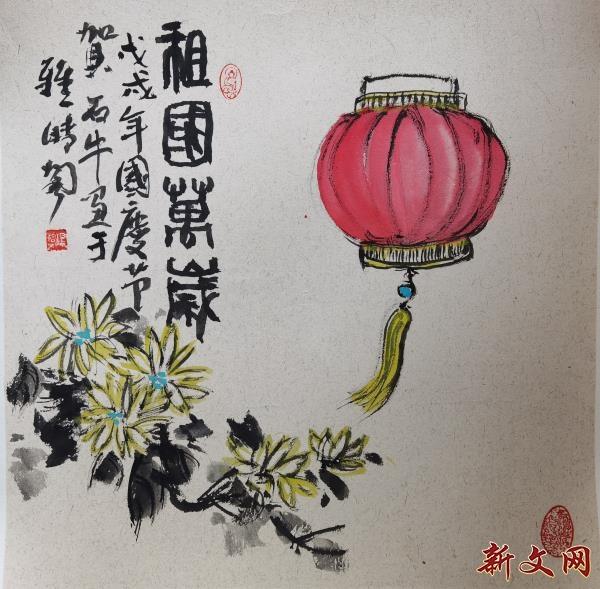 祖國萬歲
戊戌年國慶节
賀石牛画于
雅晴
新文网